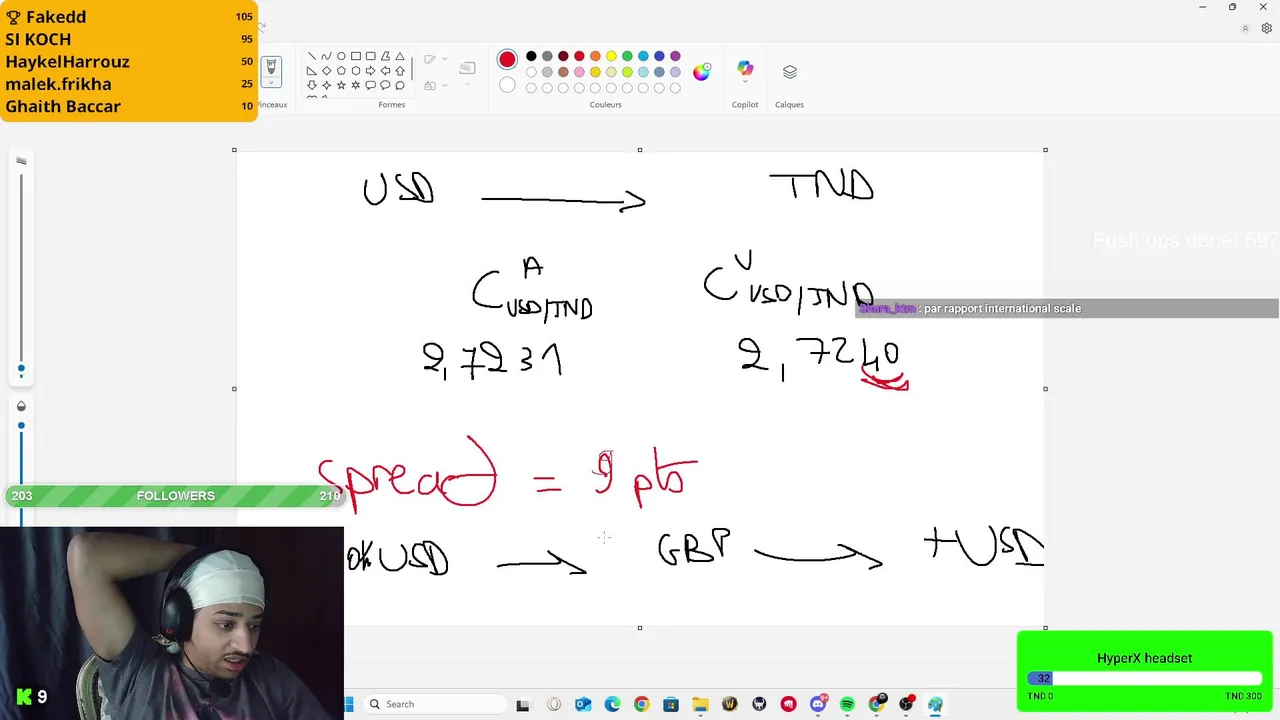 Fakedd 105
SI KOCH 95
HaykelHarrouz 50
malek.frikha 25
Ghaith Baccar 10
Pinceaux
Formes
Couleurs
Copilot
Calques
USD
TND
Push ups done: 697
C A USD/TND
C V USD/TND
Shura_ktm : par rapport international scale
2,7231
2,7240
spread = 9 pts
203 FOLLOWERS 210
USD
GBP
+USD
K 9
HyperX headset
32
TND 0 TND 300
Search